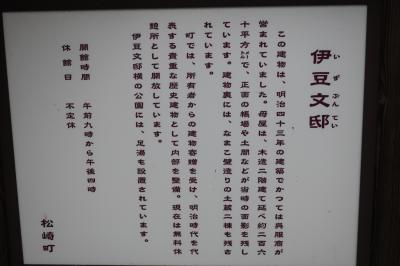 伊豆文邸
いずぶんてい
この建物は、明治四十三年の建築でかつては呉服商が
営まれていました。母屋は、木造二階建て延べ約二百六
十平方㍍で、正面の帳場や土間などが当時の面影を残し
ています。建物裏には、なまこ壁造りの土蔵二棟も残さ
れています。
町では、所有者からの建物寄贈を受け、明治時代を代
表する貴重な歴史建物として内部を整備。現在は無料休
憩所として開放しています。
伊豆文邸横の公園には、足湯も設置されています。
開館時間　午前九時から午後四時
休館日　不定休
松崎町